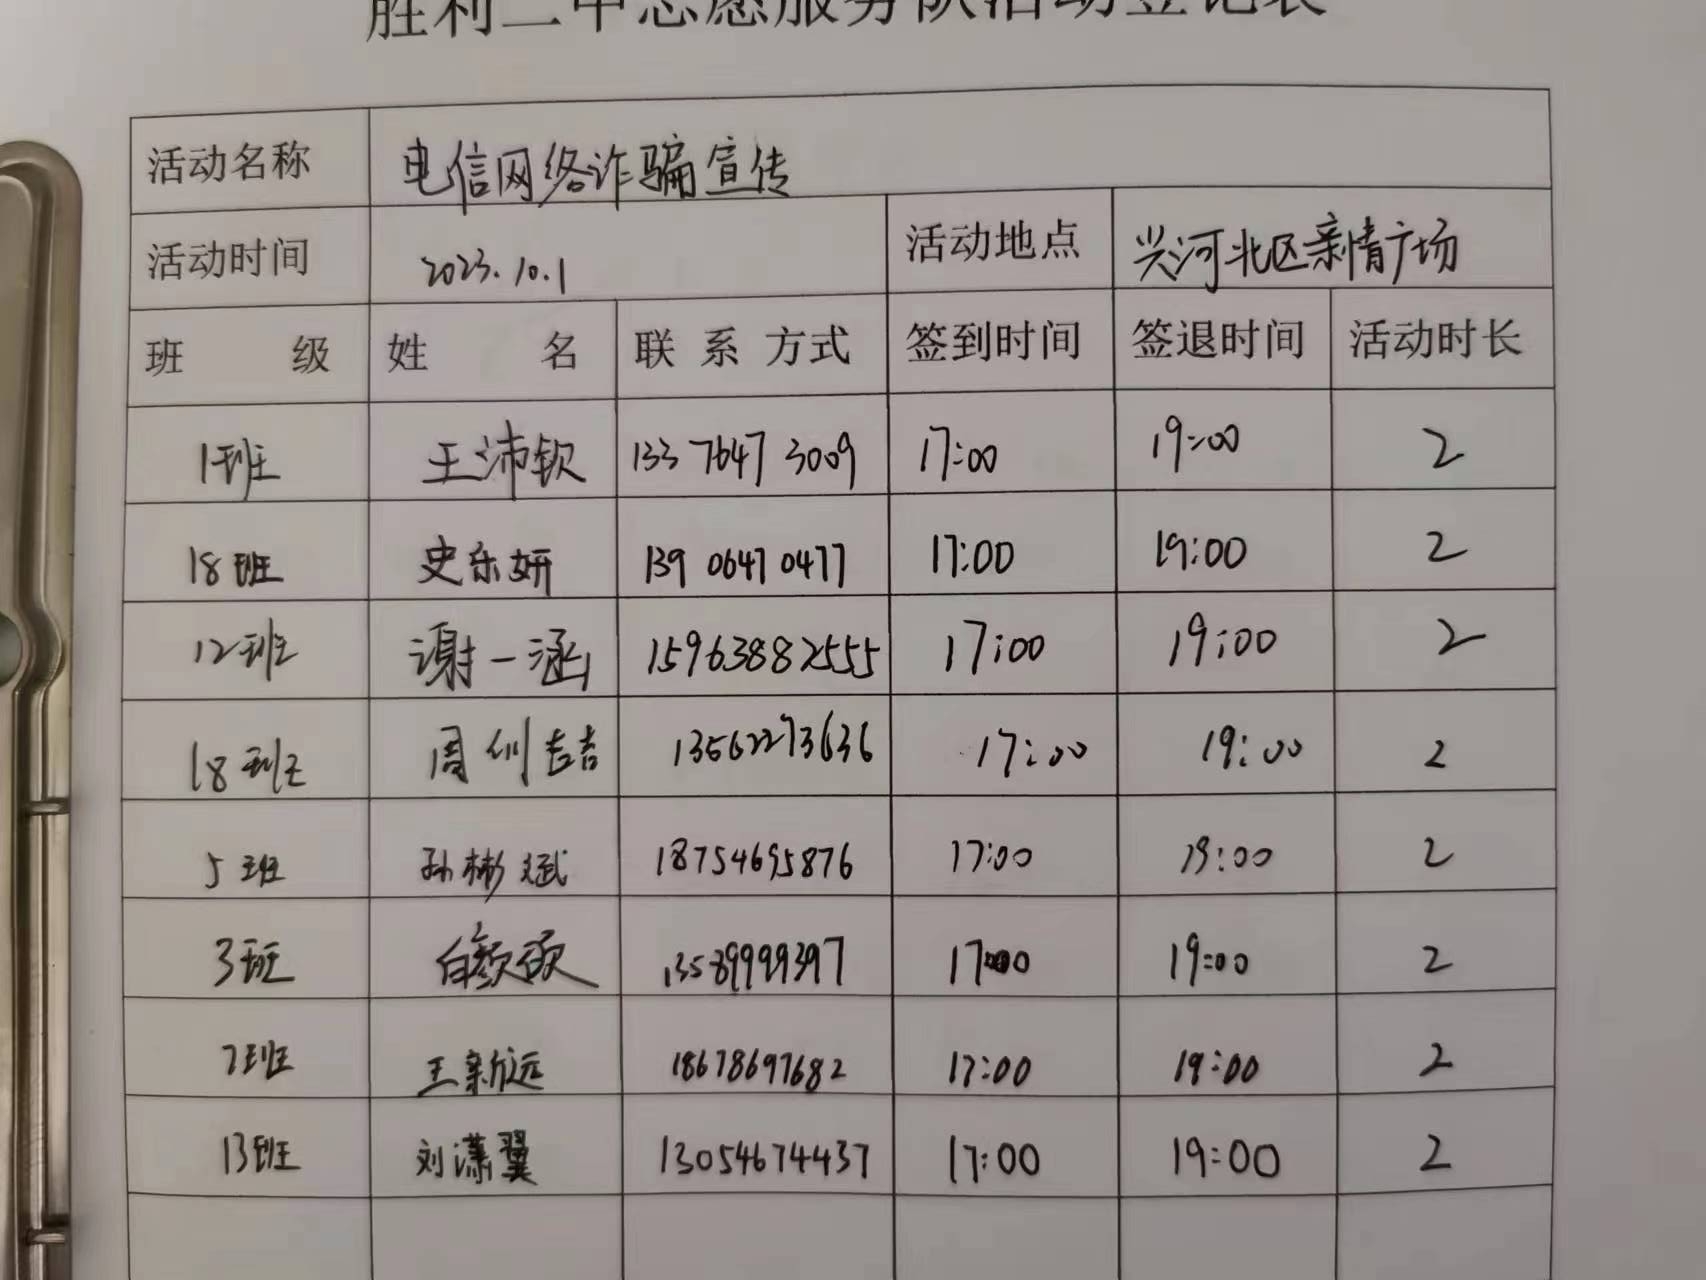 胜利二中志愿服务队活动登记表
活动名称 电信网络诈骗宣传
活动时间 2023.10.1 活动地点 兴河北区亲情广场
班 级 姓 名 联 系 方式 签到时间 签退时间 活动时长
1班 王沛钦 133 7647 3009 17:00 19:00 2
18班 史乐妍 139 0647 0477 17:00 19:00 2
12班 谢一涵 15963882555 17:00 19:00 2
18班 周训喆 13562273636 17:00 19:00 2
5班 孙彬斌 18754695876 17:00 19:00 2
3班 白颜硕 13589999397 17:00 19:00 2
7班 王新远 18678697682 17:00 19:00 2
13班 刘潇翼 13054674437 17:00 19:00 2